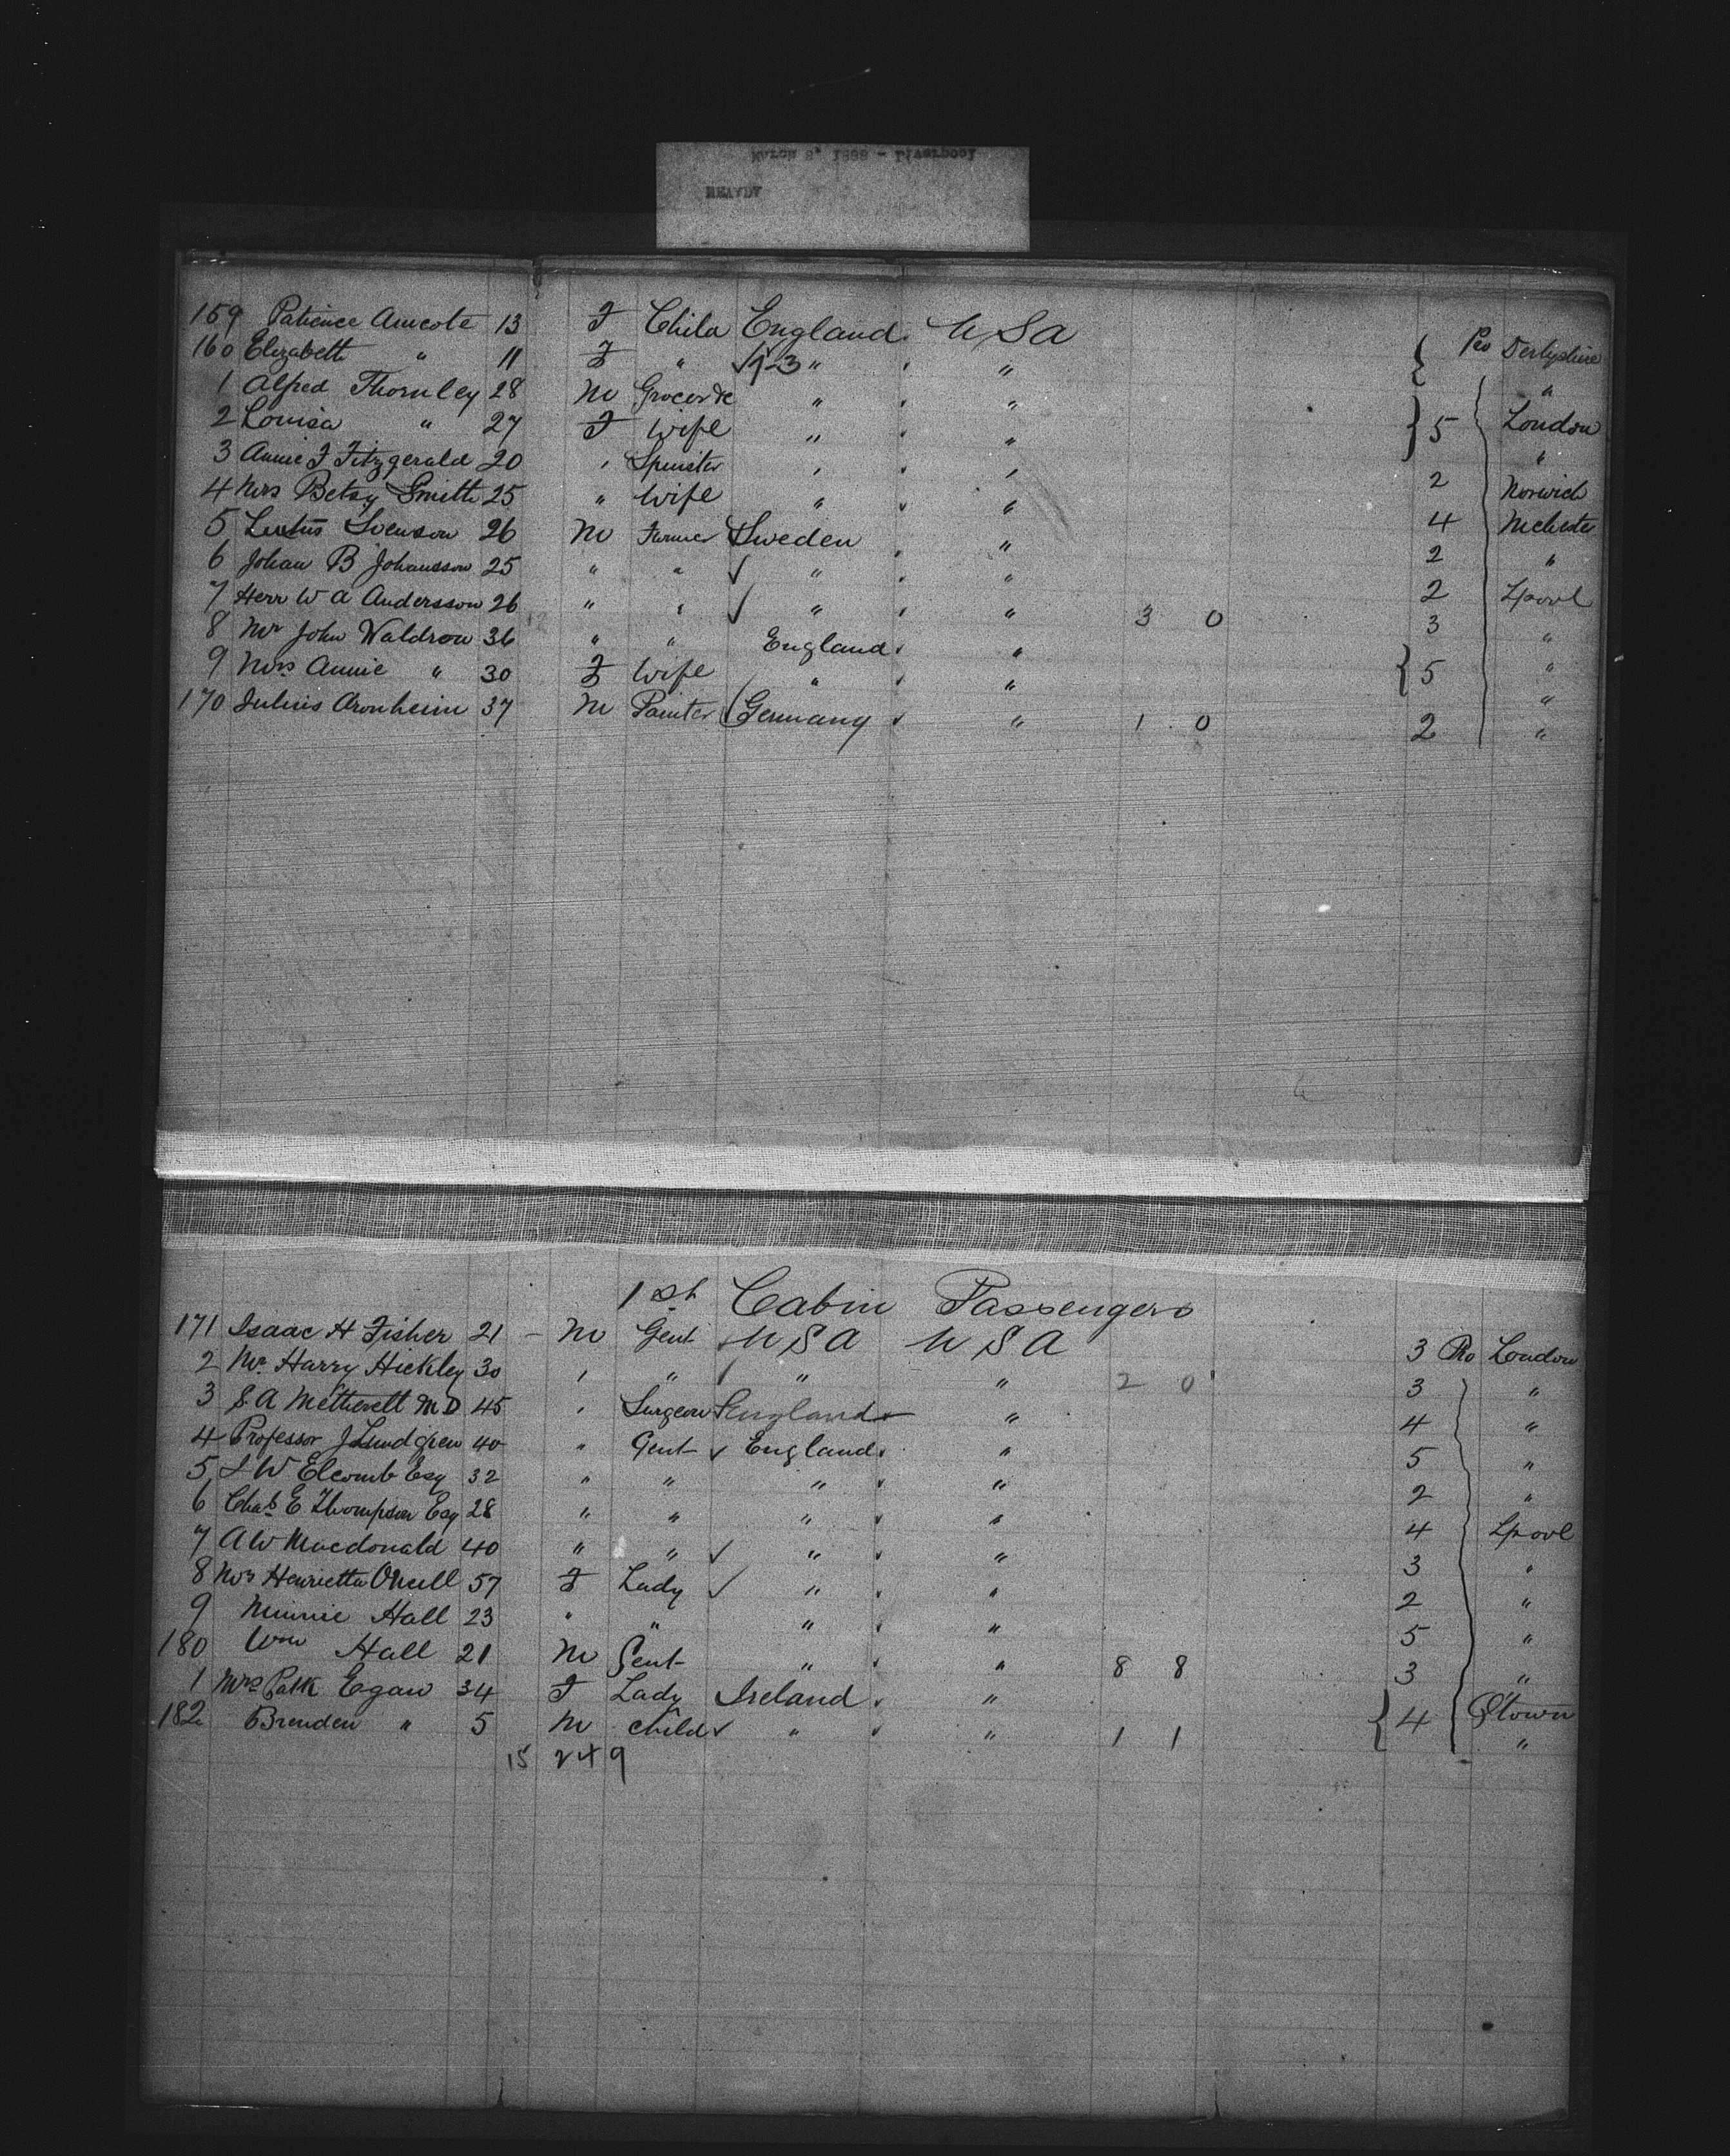 March 8, 1888 - Liverpool
159 Patience Amcote 13 F Child England. U S A Pro Derbyshire
160 Elizabeth " 11 F " " " "
1 Alfred Thornley 28 M Grocer " " London
2 Louisa " 27 F Wife " " 5 "
3 Annie F Fitzgerald 20 " Spinster " " 2 Norwich
4 Mrs Betsy Smith 25 " Wife " " 4 Mchester
5 Svenson 26 M Farmer Sweden " 2 "
6 Johan B Johansson 25 " " " " 2 Lpool
7 Herr W A Andersson 26 " " " " 3 0 3 "
8 Mr John Waldron 36 " " England " "
9 Mrs Annie " 30 F Wife " " 5 "
170 Julius Aronheim 37 M Painter Germany " 1 0 2 "
1st Cabin Passengers
171 Isaac H Fisher 21 - M Gent U S A U S A 3 Pro London
2 Mr Harry Hickley 30 " " " " 2 0 3 "
3 S. A Metherell M D 45 " Surgeon England " 4 "
4 Professor J Lundgren 40 " Gent England " 5 "
5 J W Elcomb Esq 32 " " " " 2 "
6 Chas E Thompson Esq 28 " " " " 4 Lpool
7 A W Macdonald 40 " " " " 3 "
8 Mrs Henrietta Oneill 57 F Lady " " 2 "
9 Minnie Hall 23 " " " " 5 "
180 Wm Hall 21 M Gent " " 8 8 3 "
1 Mrs Patk Egan 34 F Lady Ireland " 4 Q'town
182 Brenden " 5 M child " " 1 1 "
15 249